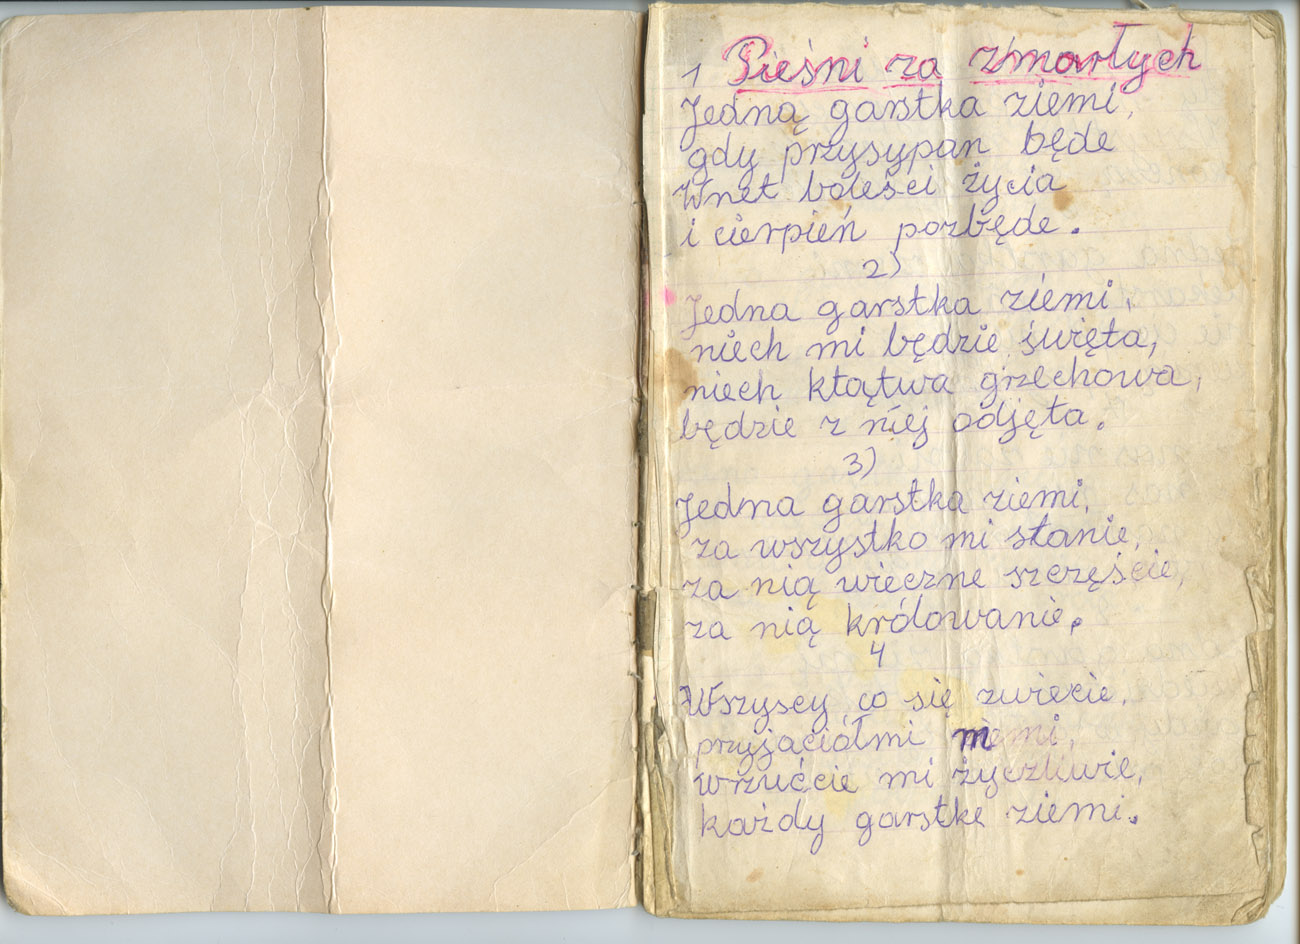 1 Pieśni za zmarłych
Jedną garstka ziemi,
gdy przysypan będe
Wnet boleści życia
i cierpień pozbęde.
2)
Jedna garstka ziemi,
niech mi będzie święta,
niech kłątwa grzechowa,
będzie z niej odjęta.
3)
Jedma garstka ziemi,
za wszystko mi stanie,
za nią wieczne szczęście,
za nią królowanie.
4
Wszyscy co się zwiecie,
przyjaciółmi memi,
wrzućcie mi życzliwie,
każdy garstke ziemi.